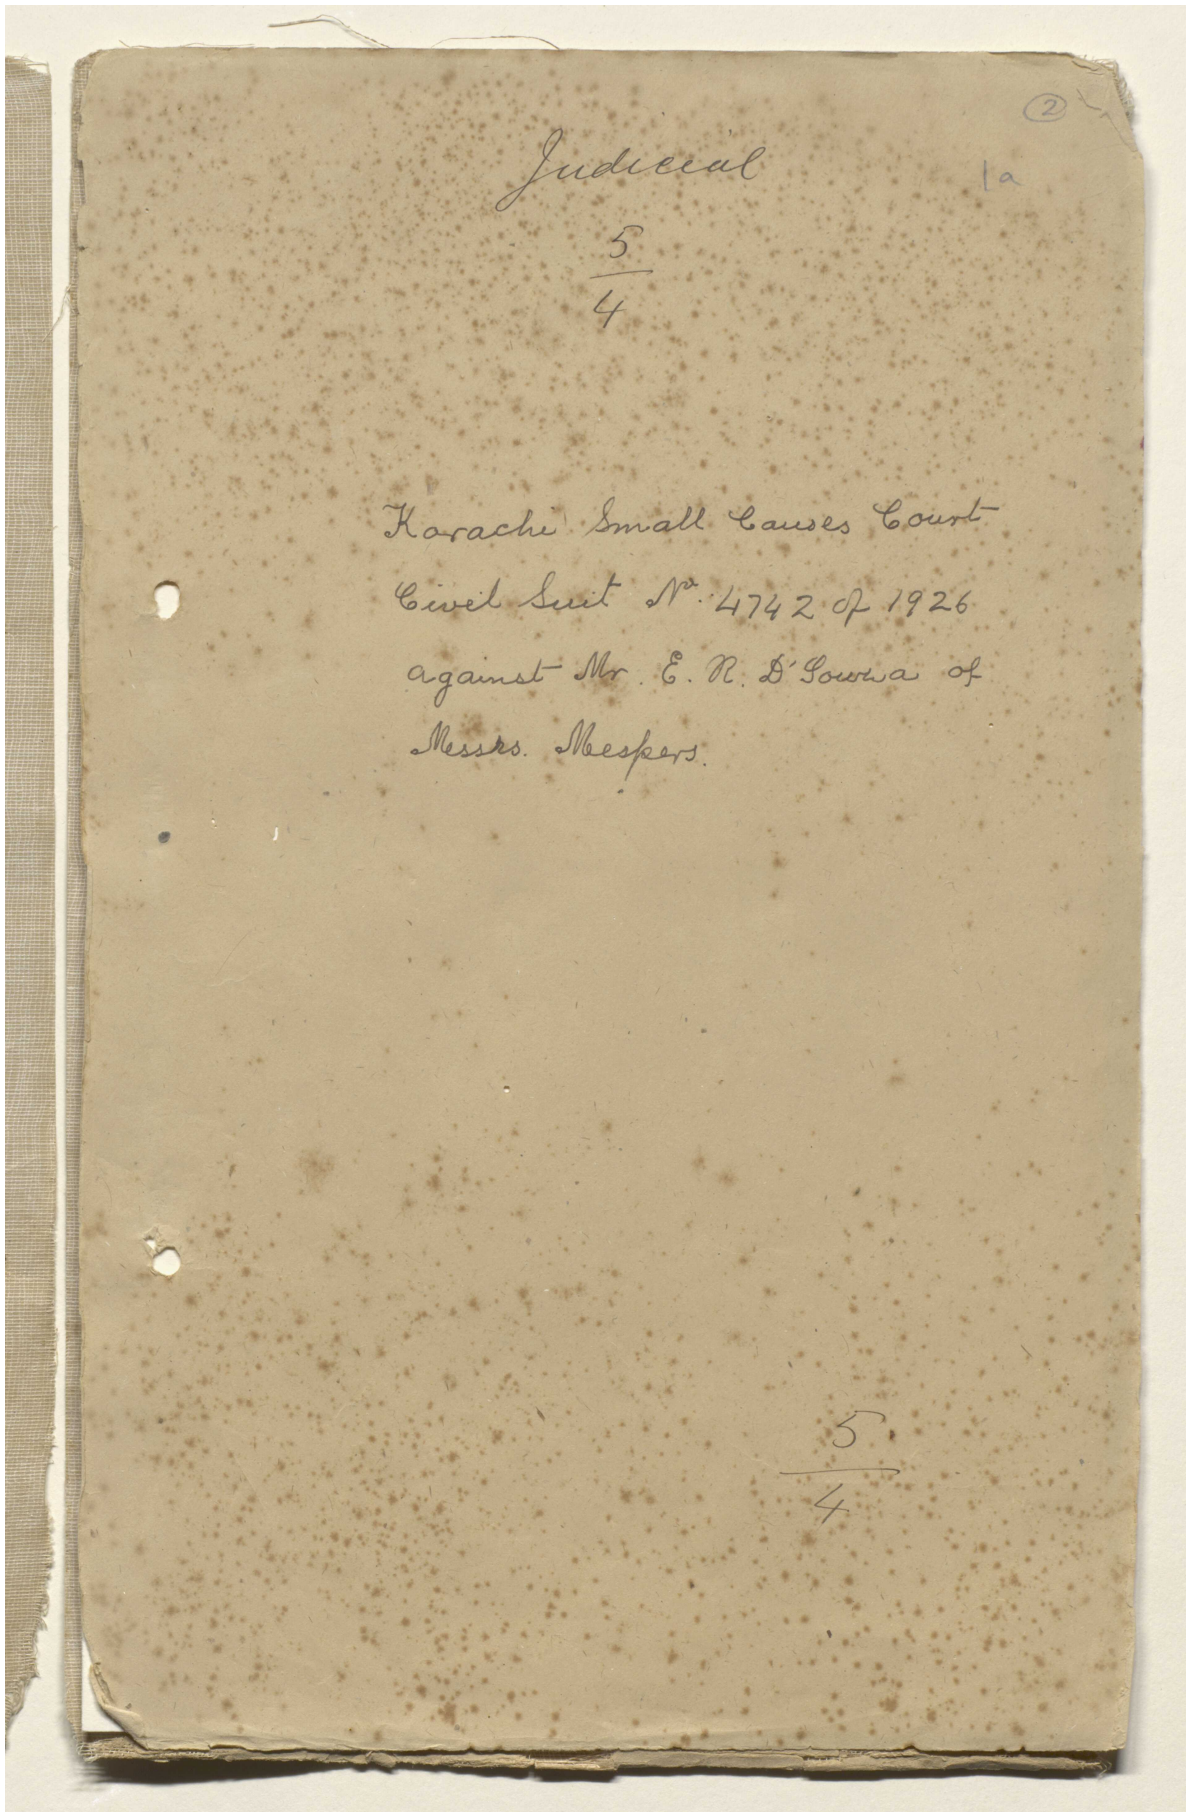 2
Judicial
1a
5
4
Karachi Small Causes Court
Civil Suit No. 4742 of 1926
against Mr. E. R. D'Souza of
Messrs. Mespers.
5
4